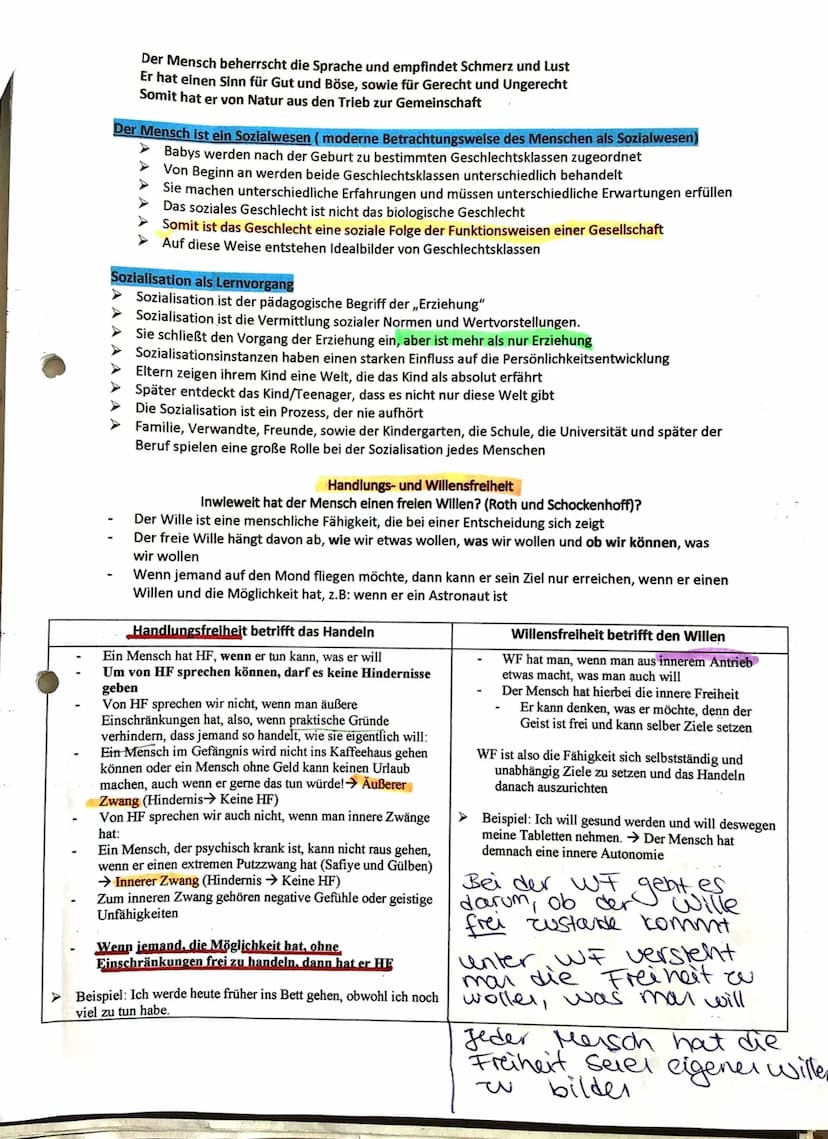 Der Mensch beherrscht die Sprache und empfindet Schmerz und Lust
Er hat einen Sinn für Gut und Böse, sowie für Gerecht und Ungerecht
Somit hat er von Natur aus den Trieb zur Gemeinschaft
Der Mensch ist ein Sozialwesen ( moderne Betrachtungsweise des Menschen als Sozialwesen)
➢ Babys werden nach der Geburt zu bestimmten Geschlechtsklassen zugeordnet
➢ Von Beginn an werden beide Geschlechtsklassen unterschiedlich behandelt
➢ Sie machen unterschiedliche Erfahrungen und müssen unterschiedliche Erwartungen erfüllen
➢ Das soziales Geschlecht ist nicht das biologische Geschlecht
➢ Somit ist das Geschlecht eine soziale Folge der Funktionsweisen einer Gesellschaft
➢ Auf diese Weise entstehen Idealbilder von Geschlechtsklassen
Sozialisation als Lernvorgang
➢ Sozialisation ist der pädagogische Begriff der „Erziehung“
➢ Sozialisation ist die Vermittlung sozialer Normen und Wertvorstellungen.
➢ Sie schließt den Vorgang der Erziehung ein, aber ist mehr als nur Erziehung
➢ Sozialisationsinstanzen haben einen starken Einfluss auf die Persönlichkeitsentwicklung
➢ Eltern zeigen ihrem Kind eine Welt, die das Kind als absolut erfährt
➢ Später entdeckt das Kind/Teenager, dass es nicht nur diese Welt gibt
➢ Die Sozialisation ist ein Prozess, der nie aufhört
➢ Familie, Verwandte, Freunde, sowie der Kindergarten, die Schule, die Universität und später der
Beruf spielen eine große Rolle bei der Sozialisation jedes Menschen
Handlungs- und Willensfreiheit
Inwieweit hat der Mensch einen freien Willen? (Roth und Schockenhoff)?
- Der Wille ist eine menschliche Fähigkeit, die bei einer Entscheidung sich zeigt
- Der freie Wille hängt davon ab, wie wir etwas wollen, was wir wollen und ob wir können, was
wir wollen
- Wenn jemand auf den Mond fliegen möchte, dann kann er sein Ziel nur erreichen, wenn er einen
Willen und die Möglichkeit hat, z.B: wenn er ein Astronaut ist
Handlungsfreiheit betrifft das Handeln
- Ein Mensch hat HF, wenn er tun kann, was er will
- Um von HF sprechen können, darf es keine Hindernisse
geben
- Von HF sprechen wir nicht, wenn man äußere
Einschränkungen hat, also, wenn praktische Gründe
verhindern, dass jemand so handelt, wie sie eigentlich will:
- Ein Mensch im Gefängnis wird nicht ins Kaffeehaus gehen
können oder ein Mensch ohne Geld kann keinen Urlaub
machen, auch wenn er gerne das tun würde!→ Äußerer
Zwang (Hindernis→ Keine HF)
- Von HF sprechen wir auch nicht, wenn man innere Zwänge
hat:
- Ein Mensch, der psychisch krank ist, kann nicht raus gehen,
wenn er einen extremen Putzzwang hat (Safiye und Gülben)
→ Innerer Zwang (Hindernis → Keine HF)
- Zum inneren Zwang gehören negative Gefühle oder geistige
Unfähigkeiten
- Wenn jemand, die Möglichkeit hat, ohne
Einschränkungen frei zu handeln, dann hat er HF
➢ Beispiel: Ich werde heute früher ins Bett gehen, obwohl ich noch
viel zu tun habe.
Willensfreiheit betrifft den Willen
- WF hat man, wenn man aus innerem Antrieb
etwas macht, was man auch will
- Der Mensch hat hierbei die innere Freiheit
- Er kann denken, was er möchte, denn der
Geist ist frei und kann selber Ziele setzen
WF ist also die Fähigkeit sich selbstständig und
unabhängig Ziele zu setzen und das Handeln
danach auszurichten
➢ Beispiel: Ich will gesund werden und will deswegen
meine Tabletten nehmen. → Der Mensch hat
demnach eine innere Autonomie
Bei der WF geht es
darum, ob der Wille
frei zustande kommt
unter WF versteht
man die Freiheit zu
wollen, was man will
Jeder Mensch hat die
Freiheit seinen eigenen Willen
zu bilden